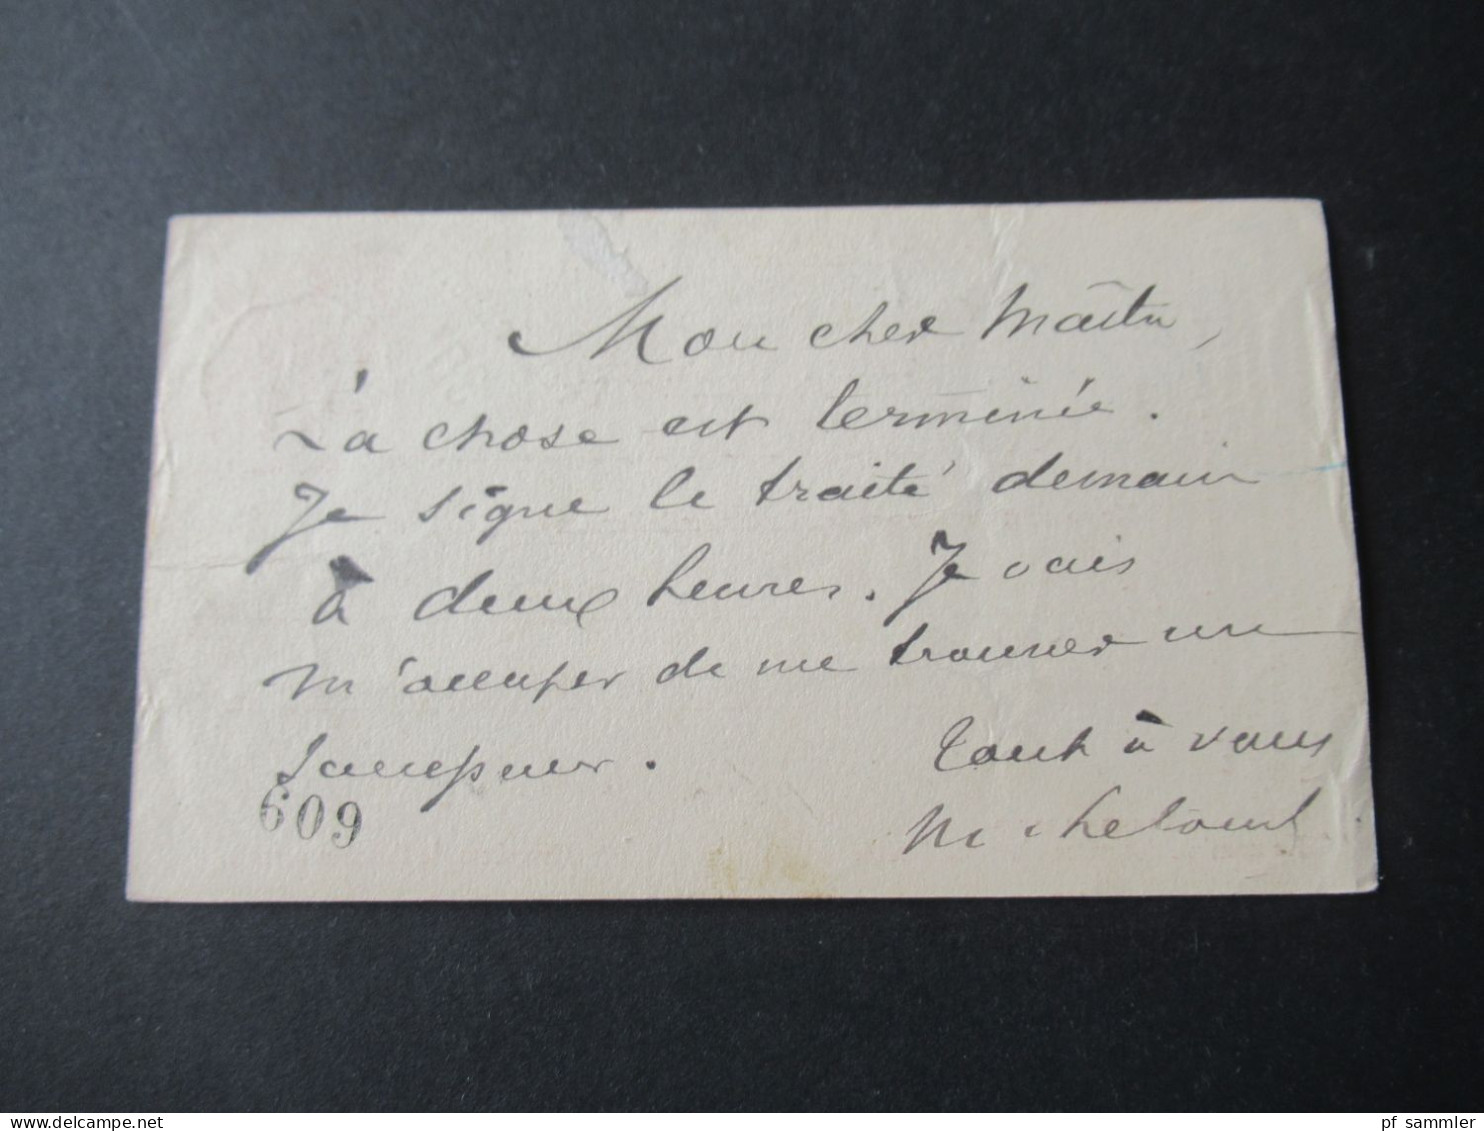 Mon cher Maître,
La chose est terminée.
Je signe le traité demain
à deux heures. Je vais
m'occuper de me trouver un
Tout à vous
609
pf sammler
www.delcampe.net